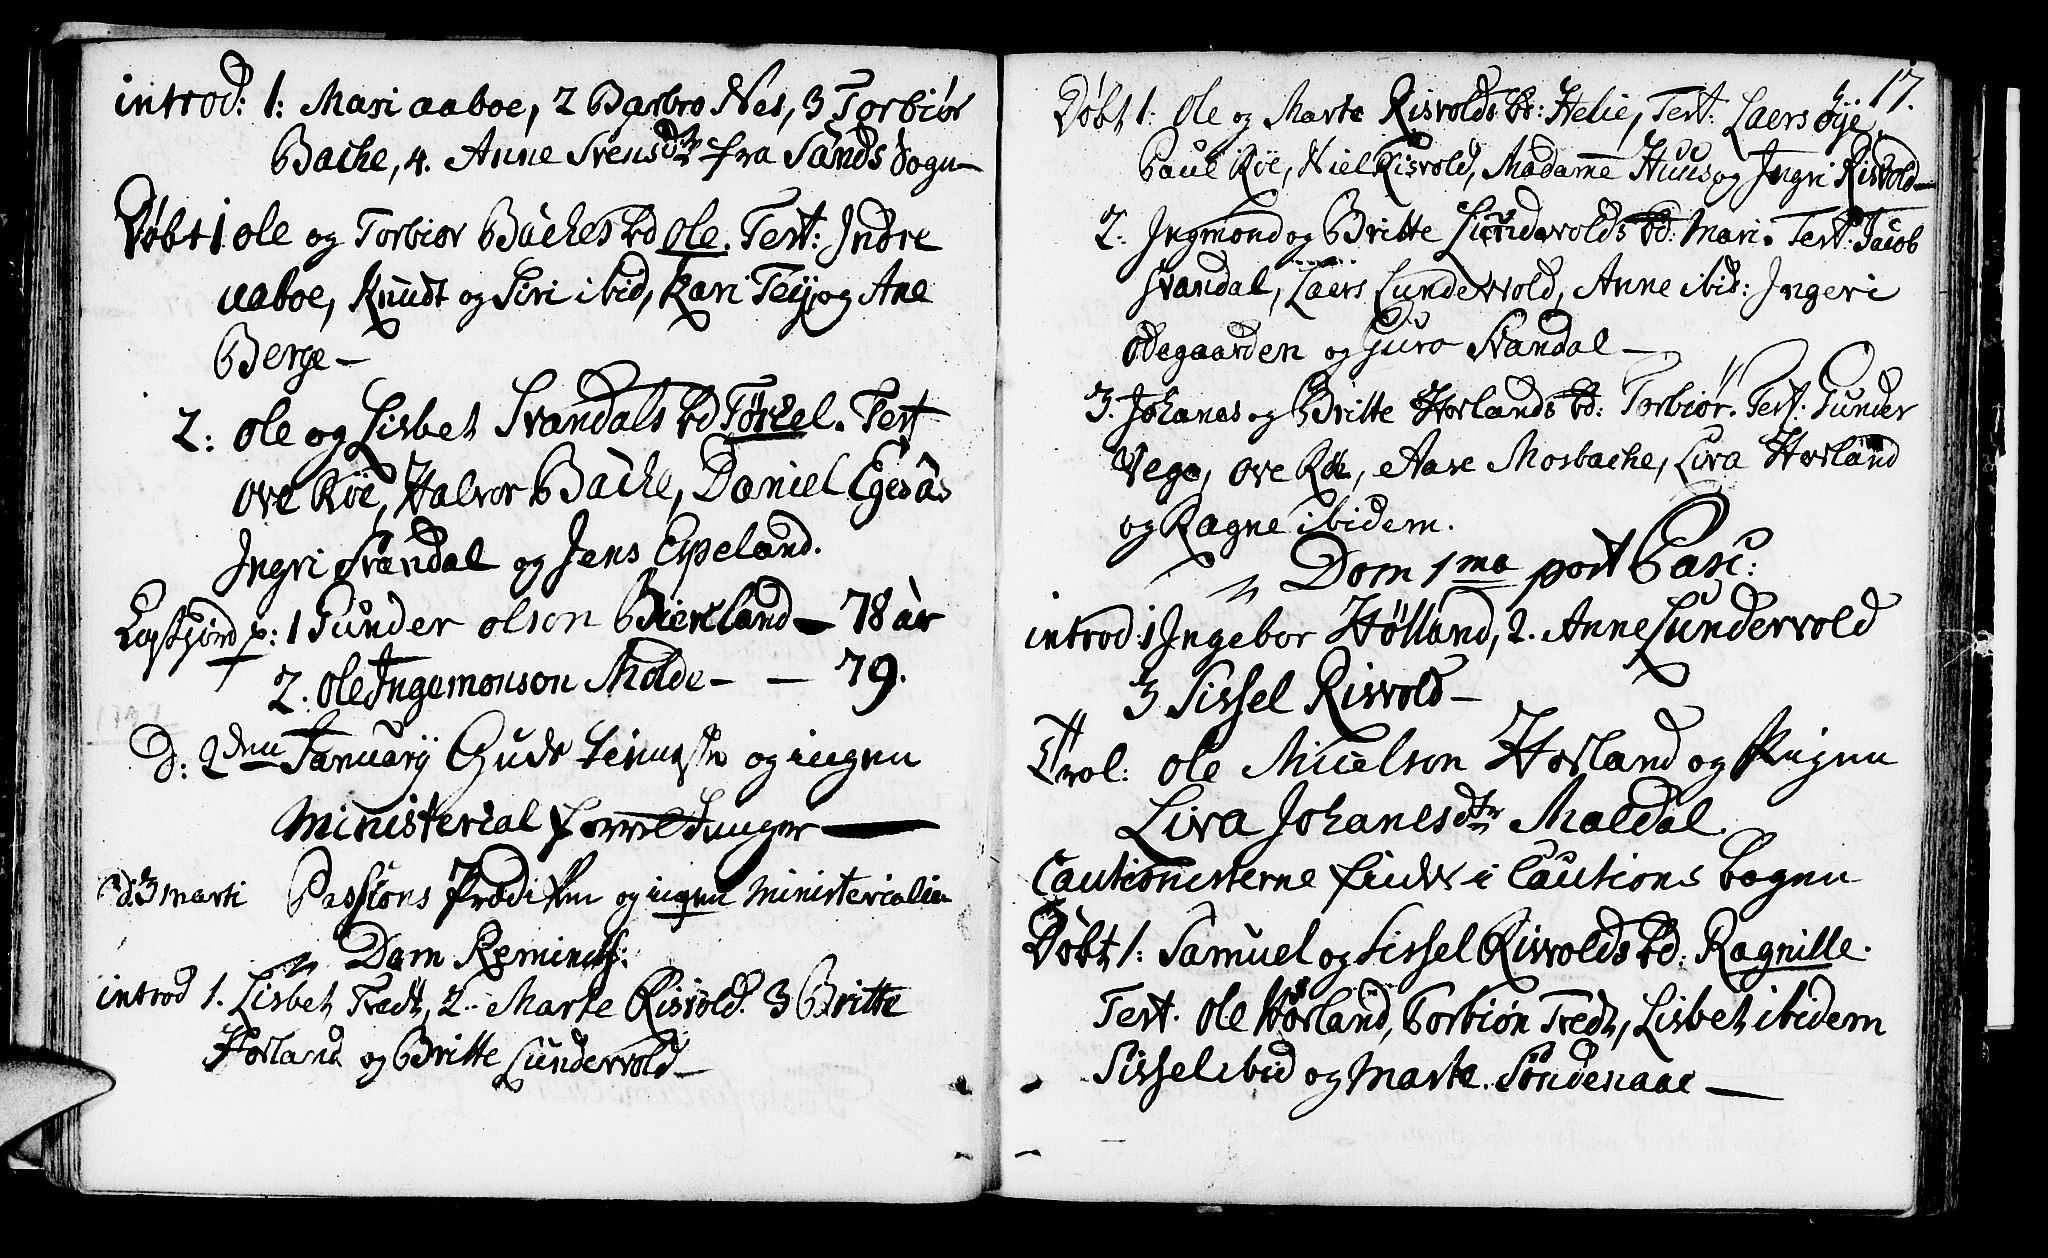 introd: 1: Mari aaboe, 2 Barbro Nes, 3 Torbiør
Bache, 4. Anne Svensdtr fra Sands Sogn –
Døbt 1 ole og Torbiør Baches bd ole. Test: Indre
aaboe, Knudt og Siri ibid, Kari Teij og Ane
Berge –
2: ole og Lisbet Svandals bd Torkel. Test
ove Röe, Halvor Bache, Daniel Egeaas
Ingri Svandal og Jens Espeland.
1 Gunder olson Birkeland – 78 år
2. ole Ingemonson Molde – – 79.
D: 2den Januarij Guds tieneste og ingen
Ministerial forretninger –
D: 3 Marti Passions Prædiken og ingen Ministerialia
Dom Reminisc:
introd 1. Lisbet Tredt, 2. Marte Risvold. 3 Britte
Horland og Britte Lundervold –
17.
Døbt 1: Ole og Marte Risvolds bd: Helie, Test: Laers öye,
Paul Röe, Niel Risvold, Madame Huus og Ingri Risvold –
2: Ingmond og Britte Lundervolds bd: Mari. Test: Jacob
Svandal, Laers Lundervold, Anne ibid: Ingeri
ödegaarden og Guro Svandal –
3. Johanes og Britte Horlands bd: Torbiør. Test: Gunder
Vege, ove Röe, Aase Mosbache, Liva Horland
og Ragne ibidem.
Dom 1ma post Pasc:
introd: 1 Ingebor Hölland, 2. Anne Lundervold
3 Sissel Risvold –
Trol: ole Nielson Horland og Pigen
Liva Johanesdtr Maldal
Cautionisterne findes i Cautions bogen
Døbt 1: Samuel og Sissel Risvolds bd: Ragnille.
Test. Ole Horland, Torbiøn Tredt, Lisbet ibidem
Sissel ibid og Marte Söndenaae –